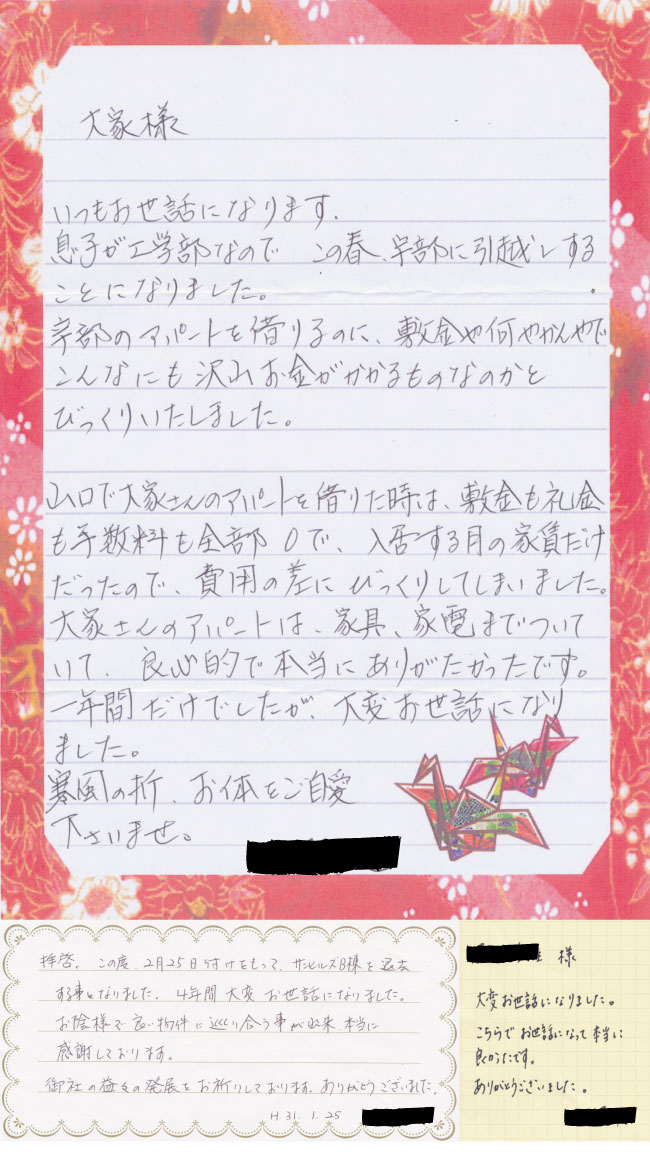 大家様
いつもお世話になります.
息子が工学部なので この春、宇部に引越しする
ことになりました。
宇部のアパートを借りるのに、敷金や何やかんやで
こんなにも沢山お金がかかるものなのかと
びっくりいたしました。
山口で大家さんのアパートを借りた時は、敷金も礼金
も手数料も全部0で、入居する月の家賃だけ
だったので、費用の差にびっくりしてしまいました。
大家さんのアパートは、家具、家電までついて
いて、良心的で本当にありがたかったです。
一年間だけでしたが、大変お世話になり
ました。
寒風の折、お体をご自愛
下さいませ。
拝啓。この度、2月25日付けをもって、サンヒルズB棟を退去
する事となりました。4年間大変お世話になりました。
お陰様で良い物件に巡り合う事が出来、本当に
感謝しております。
御社の益々の発展をお祈りしております。ありがとうございました。
H.31.1.25
様
大変お世話になりました。
こちらでお世話になって本当に
良かったです。
ありがとうございました。